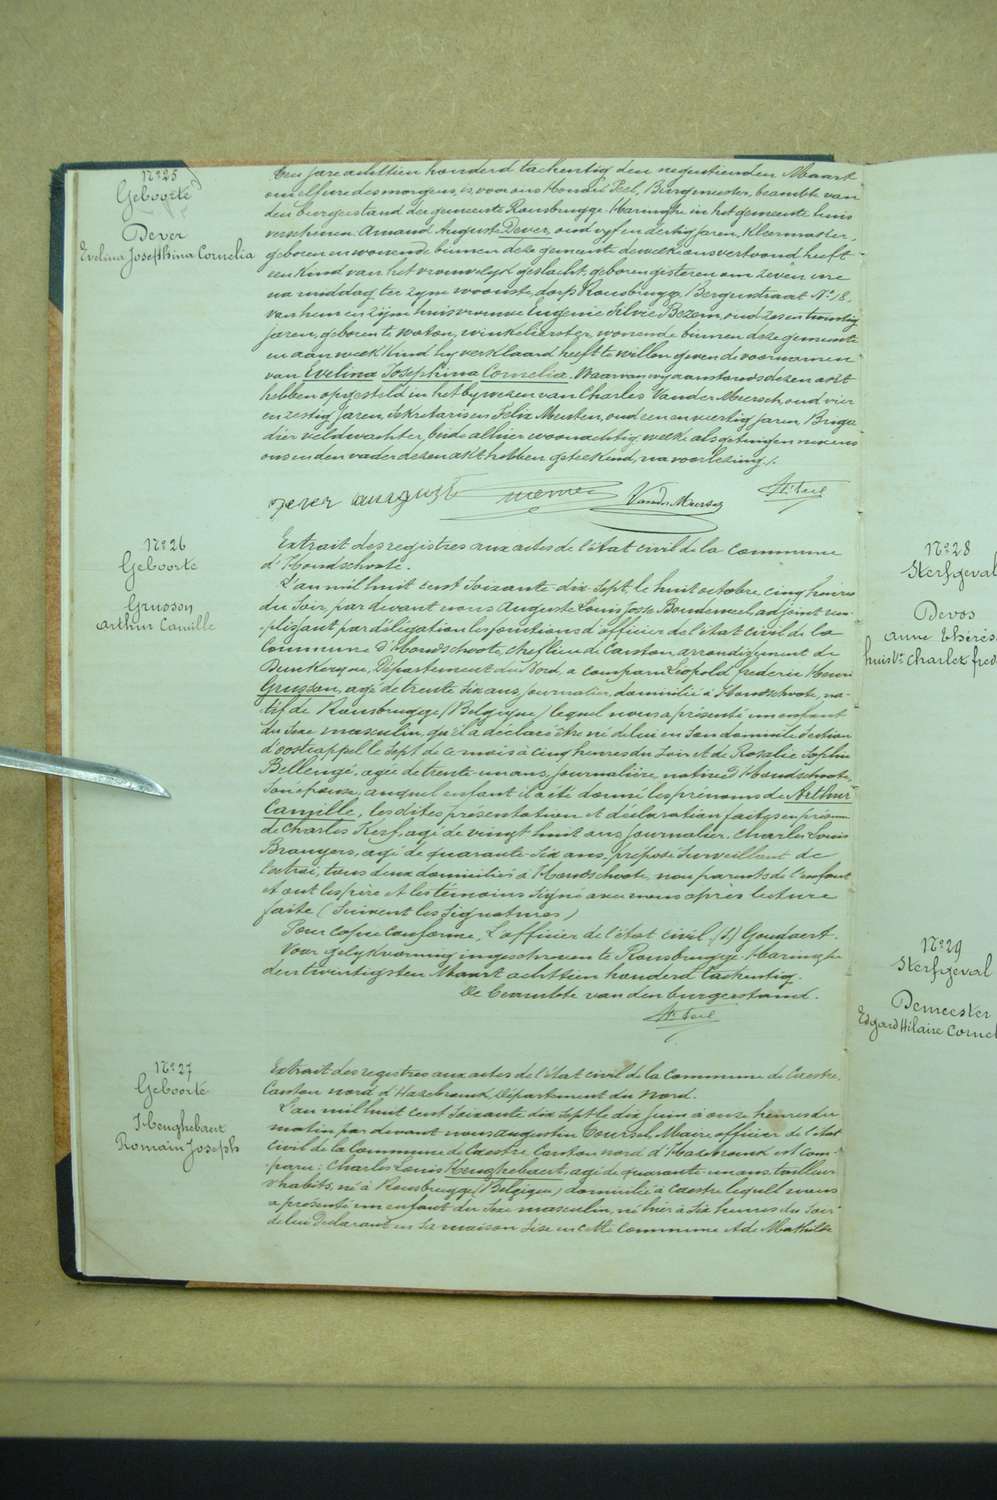 N° 25
Geboorte
Dever
Evelina Josephina Cornelia
Ten jare achttien honderd tachentig den negentienden Maart
om elf ure des morgens, is voor ons Honoré Feel, Burgmeester, beambte van
den burgerstand der gemeente Rousbrugge-Haringhe in het gemeente huis
verschenen Amand Auguste Dever, oud vyf en dertig jaren, Kleermaker,
geboren en wonende binnen deze gemeente dewelke ons vertoond heeft
een Kind van het vrouwelyk geslacht, geboren gisteren om zeven ure
na middag ter zyne woonste, dorp Rousbrugge, Bergenstraat N° 18,
van hem en zijne huisvrouwe Eugenie Silvie Bezem, oud zes en twintig
jaren, geboren te Watou, winkelierster, wonende binnen deze gemeente
en aan welk Kind hy verklaard heeft te willen geven de voornamen
van Evelina Josephina Cornelia. Waarvan wy aanstonds dezen akt
hebben opgesteld in het bywezen van Charles Vander Meersch, oud vier
en zestig jaren, sekretaris en Felix Meuken, oud een en veertig jaren, Briga-
dier veldwachter, beide alhier woonachtig, welke als getuigen nevens
ons en den vader dezen akt hebben geteekend, na voorlezing./.
Dever auguste
VanderMeersch
H. Feel
N° 26
Geboorte
Grusson
Arthur Camille
Extrait des registres aux actes de l'état civil de la commune
d'Hondschoote.
L'an mil huit cent soixante-dix-sept, le huit octobre, cinq heures
du soir, par devant nous Auguste Louis Joste Bondeweel, adjoint rem-
plissant par délégation les fonctions d'officier de l'état civil de la
commune d'Hondschoote, chef lieu de Canton, arrondissement de
Dunkerque, Département du Nord, a comparu Léopold frederic Henri
Grusson, agé de trente six ans, journalier, domicilié à Hondschoote, na-
tif de Rousbrugge (Belgique) lequel nous a présenté un enfant
du sexe masculin, qu'il a déclaré être né de lui en son domicile section
d'oostcappel le sept de ce mois à cinq heures du soir et de Rosalie Sophie
Bellengé, agée de trente-un ans, journalière, native d'Hondschoote,
son épouse, auquel enfant il a été donné les prénoms de Arthur
Camille, les dites présentation et déclaration faites en présence
de Charles Tresf, agé de vingt huit ans, journalier, Charles Louis
Brouyers, agé de quarante-six ans, préposé surveillant de
l'octroi, tous deux domiciliés à Hondschoote, non parents de l'enfant
et ont les père et les témoins signé avec nous après lecture
faite (Suivent les signatures)
Pour copie conforme, L'officier de l'état civil, (S) Goudaert.
Voor gelykvormig ingeschreven te Rousbrugge-Haringhe
den twintigsten Maart achttien honderd tachentig.
De Beambte van den burgerstand.
H. Feel
N° 27
Geboorte
Heughebaert
Romain Joseph
Extrait des registres aux actes de l'état civil de la commune de Caestre,
Canton nord d'Hazebrouck, Département du Nord.
L'an mil huit cent soixante dix sept le dix juin à onze heures du
matin, par devant nous Augustin Coursel, Maire, officier de l'état
civil de la commune de Caestre, Canton nord d'Hazebrouck est com-
paru: Charles Louis Heughebaert, agé de quarante-un ans, tailleur
d'habits, né à Rousbrugge (Belgique) domicilié à Caestre lequel nous
a présenté un enfant du sexe masculin, né hier à six heures du soir
de lui Déclarant en sa maison sise en cette commune et de Mathilde
N° 28
Sterfgeval
Devos
Anne Thérés
huisv. Charles fred
N° 29
Sterfgeval
Demeester
Edgard Hilaire Cornel